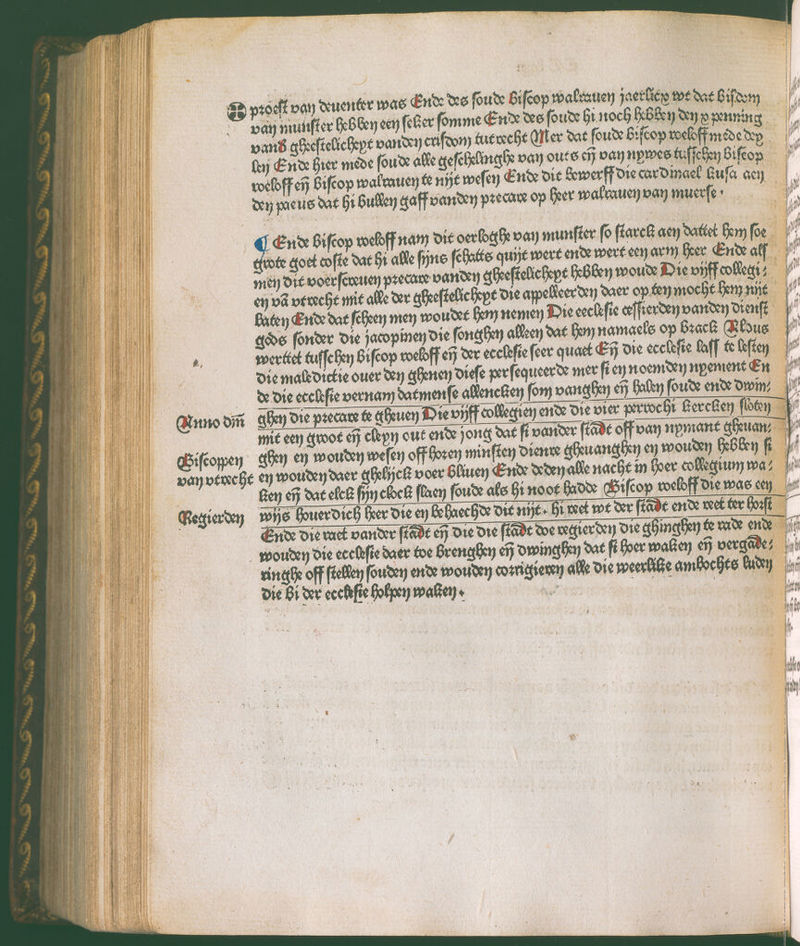 proest van deuenter was Ende des soude biscop walrauen jaerlicx wt dat bisdom
van munster hebben een seker somme Ende des soude hi noch hebben den x penning
vand gheestelicheyt vanden crisdom tutrecht Mer dat soude biscop roeloff mede dey
len Ende hier mede soude alle geschelinghe van outs eñ van nywes tusschen biscop
roeloff eñ biscop walrauen te nijt wesen Ende dit bewerff die cardinael kusa aen
den paeus dat hi bullen gaff vanden precare op heer walrauen van muerse .
Ende biscop roeloff nam dit oerloghe van munster so starck aen dattet hem soe
grote goet coste dat hi alle sijns schatts quijt wert ende wert een arm heer Ende als
men dit voerscreuen precare vanden gheestelicheyt hebben woude Die vijff collegi:
en vā vtrecht mit alle der gheestelicheyt die appelleerden daer op ten mocht hem nijt
baten Ende dat scheen men woudet hem nemen Die ecclesie cessierden vanden dienst
gods sonder die jacopinen die songhen alleen dat hem namaels op brack Aldus
werttet tusschen biscop roeloff eñ der ecclesie seer quaet Eñ die ecclesie lass te lesten
die maledictie ouer den ghenen diese persequeerde mer si en noemden nyement En
de die ecclesie vernam datmense allencken som vanghen eñ halen soude ende dwin:
Anno dm̄ ghen die precare te gheuen Die vijff collegien ende die vier perrochi kercken sloten
mit een groot eñ cleyn out ende jong dat si vander stadt off van nymant gheuan:
Biscoppen ghen en wouden wesen off horen minsten dienre gheuanghen en wouden hebben si
van vtrecht en wouden daer ghelijck voer bliuen Ende deden alle nacht in hoer collegium wa:
ken eñ dat elck sijn clock slaen soude als hi noot hadde Biscop roeloff die was een
Regierden wijs houerdich heer die en behaechde dit nijt. hi reet wt der stadt ende reet ter horst
Ende die raet vander stadt eñ die die stadt doe regierden die ghinghen te rade ende
wouden die ecclesie daer toe brenghen eñ dwinghen dat si hoer waken eñ vergade:
ringhe off stellen souden ende wouden corrigieren alle die weerlike ambochts luden
die bi der ecclesie holpen waken.